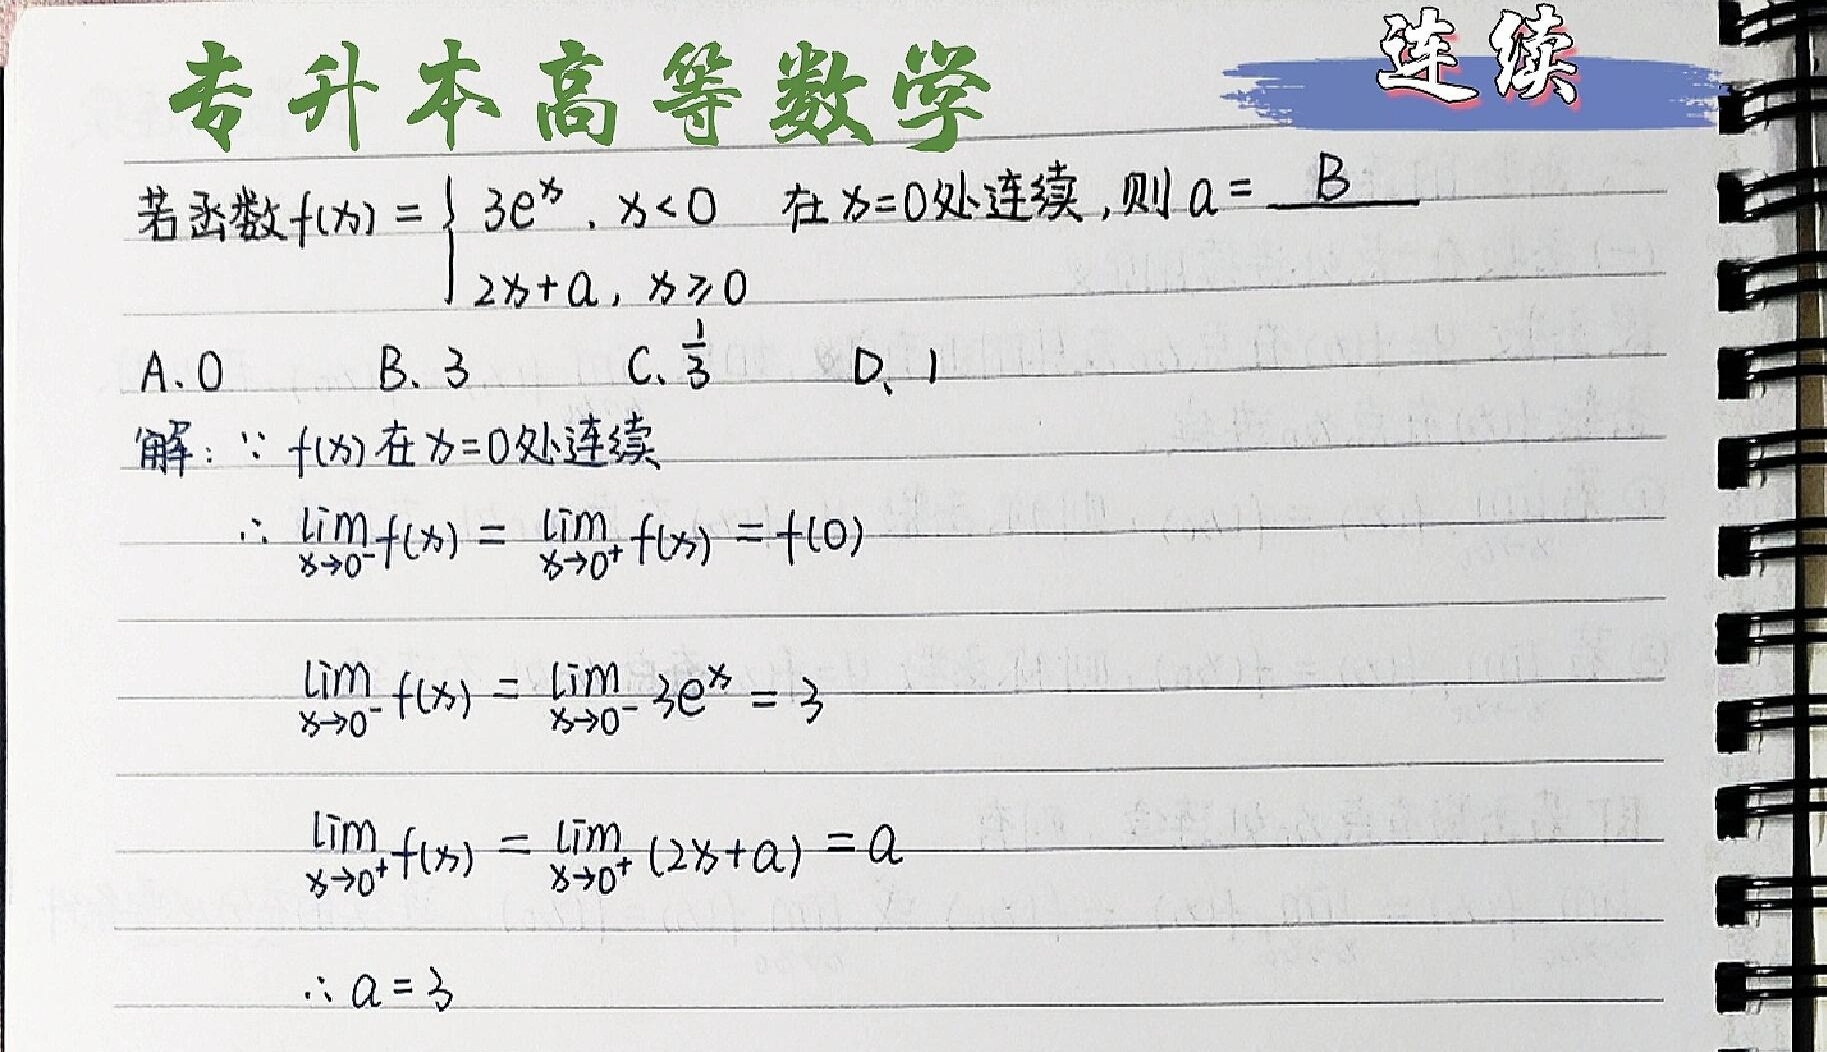 专升本高等数学
连续
若函数f(x) = { 3eˣ, x<0 在x=0处连续,则a= B
2x+a, x≥0
A、0 B、3 C、1/3 D、1
解: ∵ f(x)在x=0处连续
∴ lim x→0⁻ f(x) = lim x→0⁺ f(x) = f(0)
lim x→0⁻ f(x) = lim x→0⁻ 3eˣ = 3
lim x→0⁺ f(x) = lim x→0⁺ (2x+a) = a
∴ a = 3